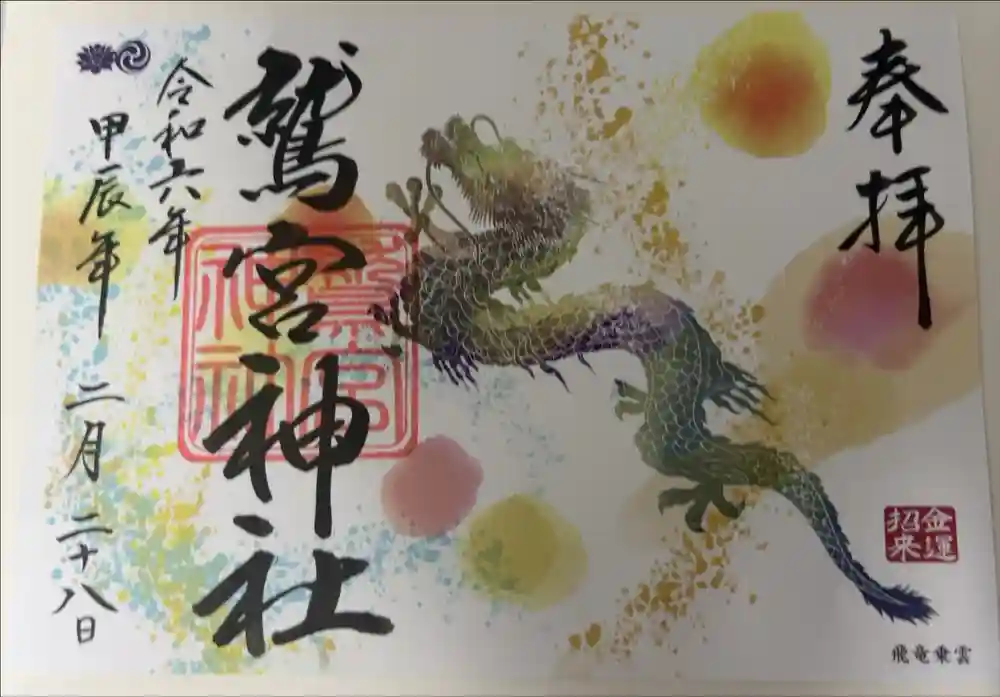 奉拝
金運
招来
飛竜乗雲
鷲宮神社
鷲宮
神社
令和六年
甲辰年 二月 二十八日